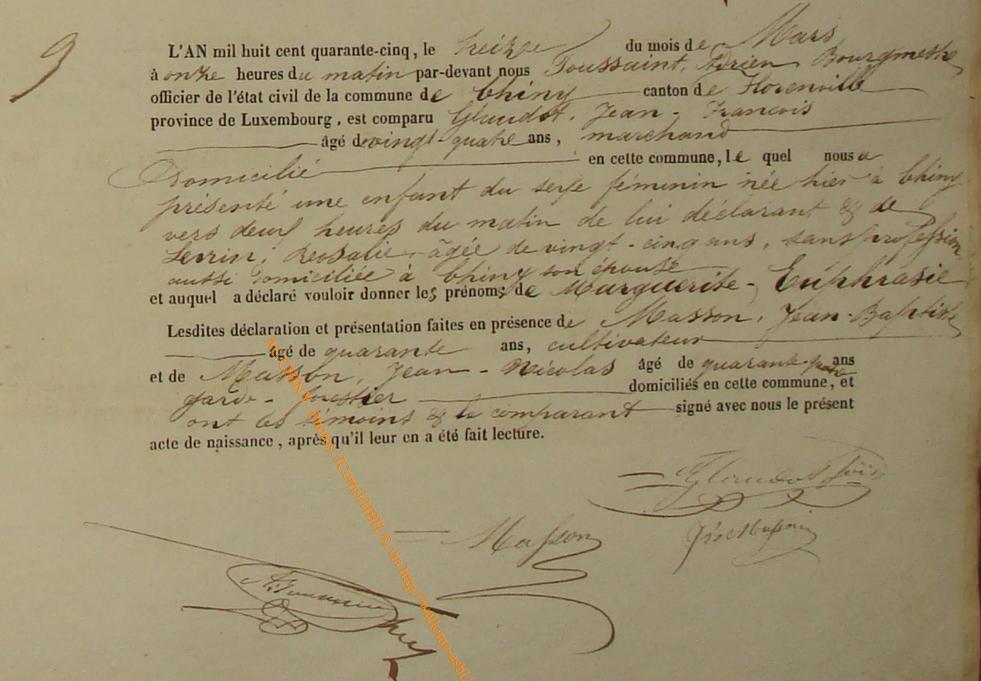 9
L'AN mil huit cent quarante-cinq, le treize du mois de Mars
à onze heures du matin par-devant nous Toussaint, Adrien Bourgmestre
officier de l'état civil de la commune de Chiny canton de Florenville
province de Luxembourg, est comparu Glaudot, Jean-François
âgé de vingt-quatre ans, marchand
Domicilié en cette commune, le quel nous a
présenté une enfant du sexe féminin née hier à Chiny
vers deux heures du matin de lui déclarant & de
Rosalie âgée de vingt-cinq ans, sans profession,
aussi domiciliée à Chiny son épouse
et auquel a déclaré vouloir donner les prénoms de Marguerite-Euphrasie
Lesdites déclaration et présentation faites en présence de Masson, Jean-Baptiste
âgé de quarante ans, cultivateur
et de Masson, Jean-Nicolas âgé de quarante- ans
garde-forestier domiciliés en cette commune, et
ont les témoins & le comparant signé avec nous le présent
acte de naissance, après qu'il leur en a été fait lecture.
Masson